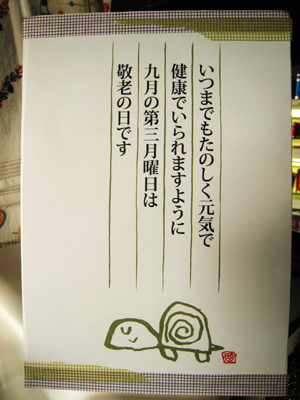 いつまでもたのしく元気で
健康でいられますように
九月の第三月曜日は
敬老の日です